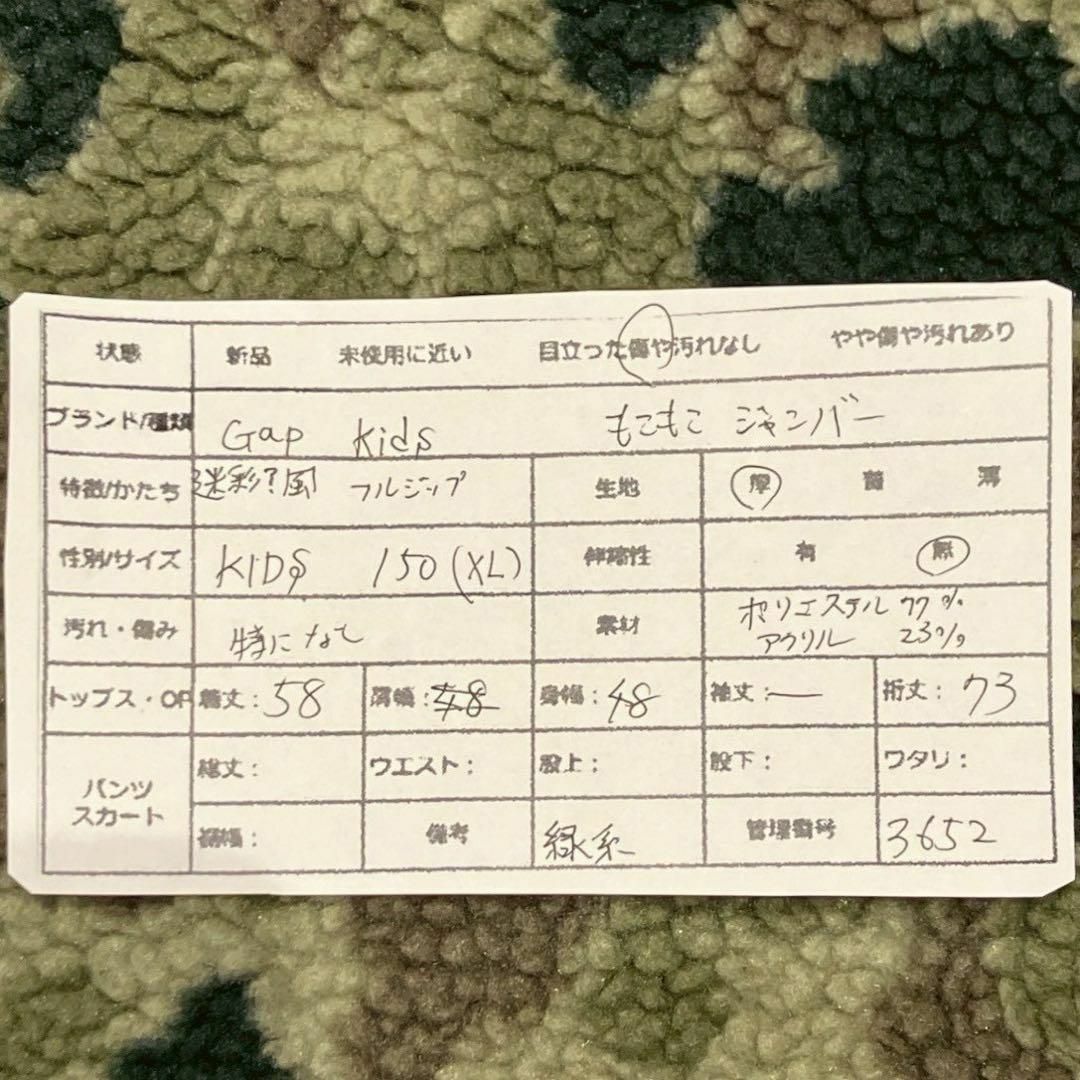 状態 新品 未使用に近い 目立った傷や汚れなし やや傷や汚れあり
ブランド/種類 Gap Kids もこもこ ジャンバー
特徴/かたち 迷彩?風 フルジップ 生地 厚 普 薄
性別/サイズ KIDS 150(XL) 伸縮性 有 無
汚れ・傷み 特になし 素材 ポリエステル 77%
アクリル 23%
トップス・OP 着丈:58 肩幅:48 身幅:48 袖丈:— 裄丈:73
パンツ
スカート
総丈: ウエスト: 股上: 股下: ワタリ:
裾幅: 備考 緑系 管理番号 3652